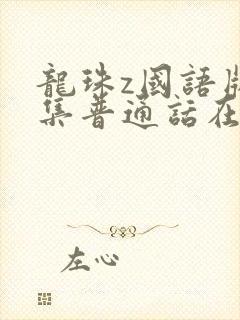 龍珠z國語
集普通話在
左心